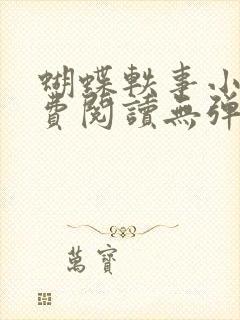 蝴蝶軼事小
費閱讀無彈
萬寶